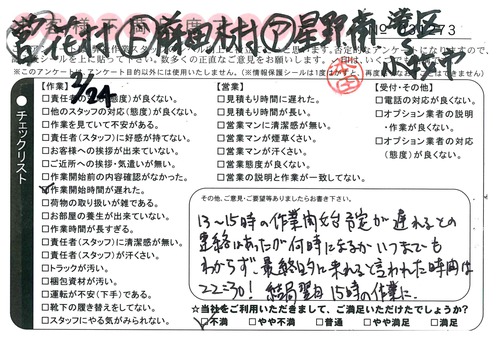 営 花村 ⓑ 蘇田木村 ⓐ 星野 南 滝区
小牧市
№ 0273
※このアンケートはアンケート目的以外には使用いたしません。(※情報保護シールは1度
2/24
チェックリスト
【作業】
□責任者の
(態度)が良くない。
□他のスタッフの対応(態度)が良くない。
□作業を見ていて不安がある。
□責任者(スタッフ)に好感が持てない。
□お客様への挨拶が出来ていない。
□ご近所への挨拶・気遣いが無い。
□作業開始前の内容確認がなかった。
☑作業開始時間が遅れた。
□荷物の取り扱いが雑である。
□お部屋の養生が出来ていない。
□作業時間が長すぎる。
□責任者(スタッフ)に清潔感が無い。
□責任者(スタッフ)が汗くさい。
□トラックが汚い。
□梱包資材が汚い。
□運転が不安(下手)である。
□靴下の履き替えをしてない。
□スタッフにやる気がみられない。
【営業】
□見積もり時間に遅れた。
□見積もり時間が長い。
□営業マンに清潔感が無い。
□営業マンが煙草くさい。
□営業マンが汗くさい。
□営業態度が良くない。
□営業の説明と作業が一致してない。
【受付・その他】
□電話の対応が良くない。
□オプション業者の説明
・作業が良くない。
□オプション業者の対応
(態度)が良くない。
その他、ご意見・ご要望等ありましたらお書き下さい。
13〜15時の作業開始予定が遅れるとの
連絡はあったが何時になるかいつまでも
わからず、最終的に来れると言われた時間は
22:30! 結局翌日15時の作業に。
☆当社をご利用いただきまして、ご満足いただけたでしょうか?
☑不満 □やや不満 □普通 □やや満足 □満足